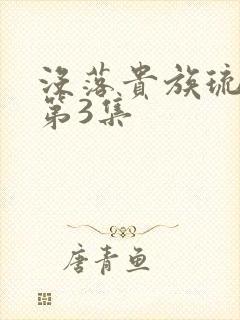 没落貴族琉
第3集
唐青鱼